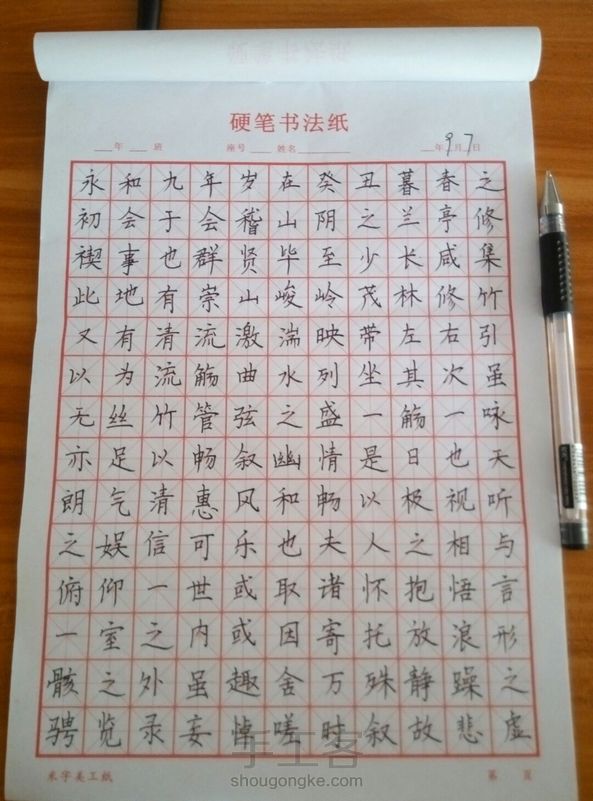 硬笔书法纸
年 班 座号 姓名 年9月7日
永和九年岁在癸丑暮春之
初会于会稽山阴之兰亭修
禊事也群贤毕至少长咸集
此地有崇山峻岭茂林修竹
又有清流激湍映带左右引
以为流觞曲水列坐其次虽
无丝竹管弦之盛一觞一咏
亦足以畅叙幽情是日也天
朗气清惠风和畅以极视听
之娱信可乐也夫人之相与
俯仰一世或取诸怀抱悟言
一室之内或因寄托放浪形
骸之外虽趣舍万殊静躁之
骋览录妄悼嗟时叙故悲虚
米字美工纸 第 页
手工客
shougongke.com